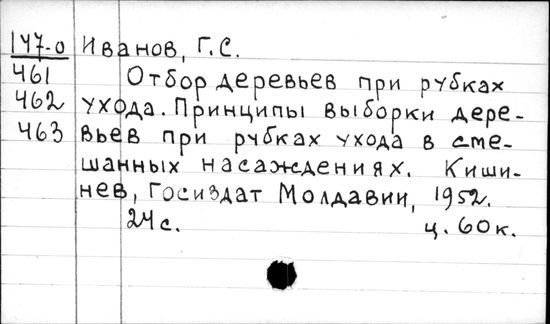 147-о Иванов, Г.С.
461 Отбор деревьев при рубках
462 ухода. Принципы выборки дере-
463 вьев при рубках ухода в сме-
шанных насаждениях. Киши-
нев, Госиздат Молдавии, 1952.
24с. ц. 60к.